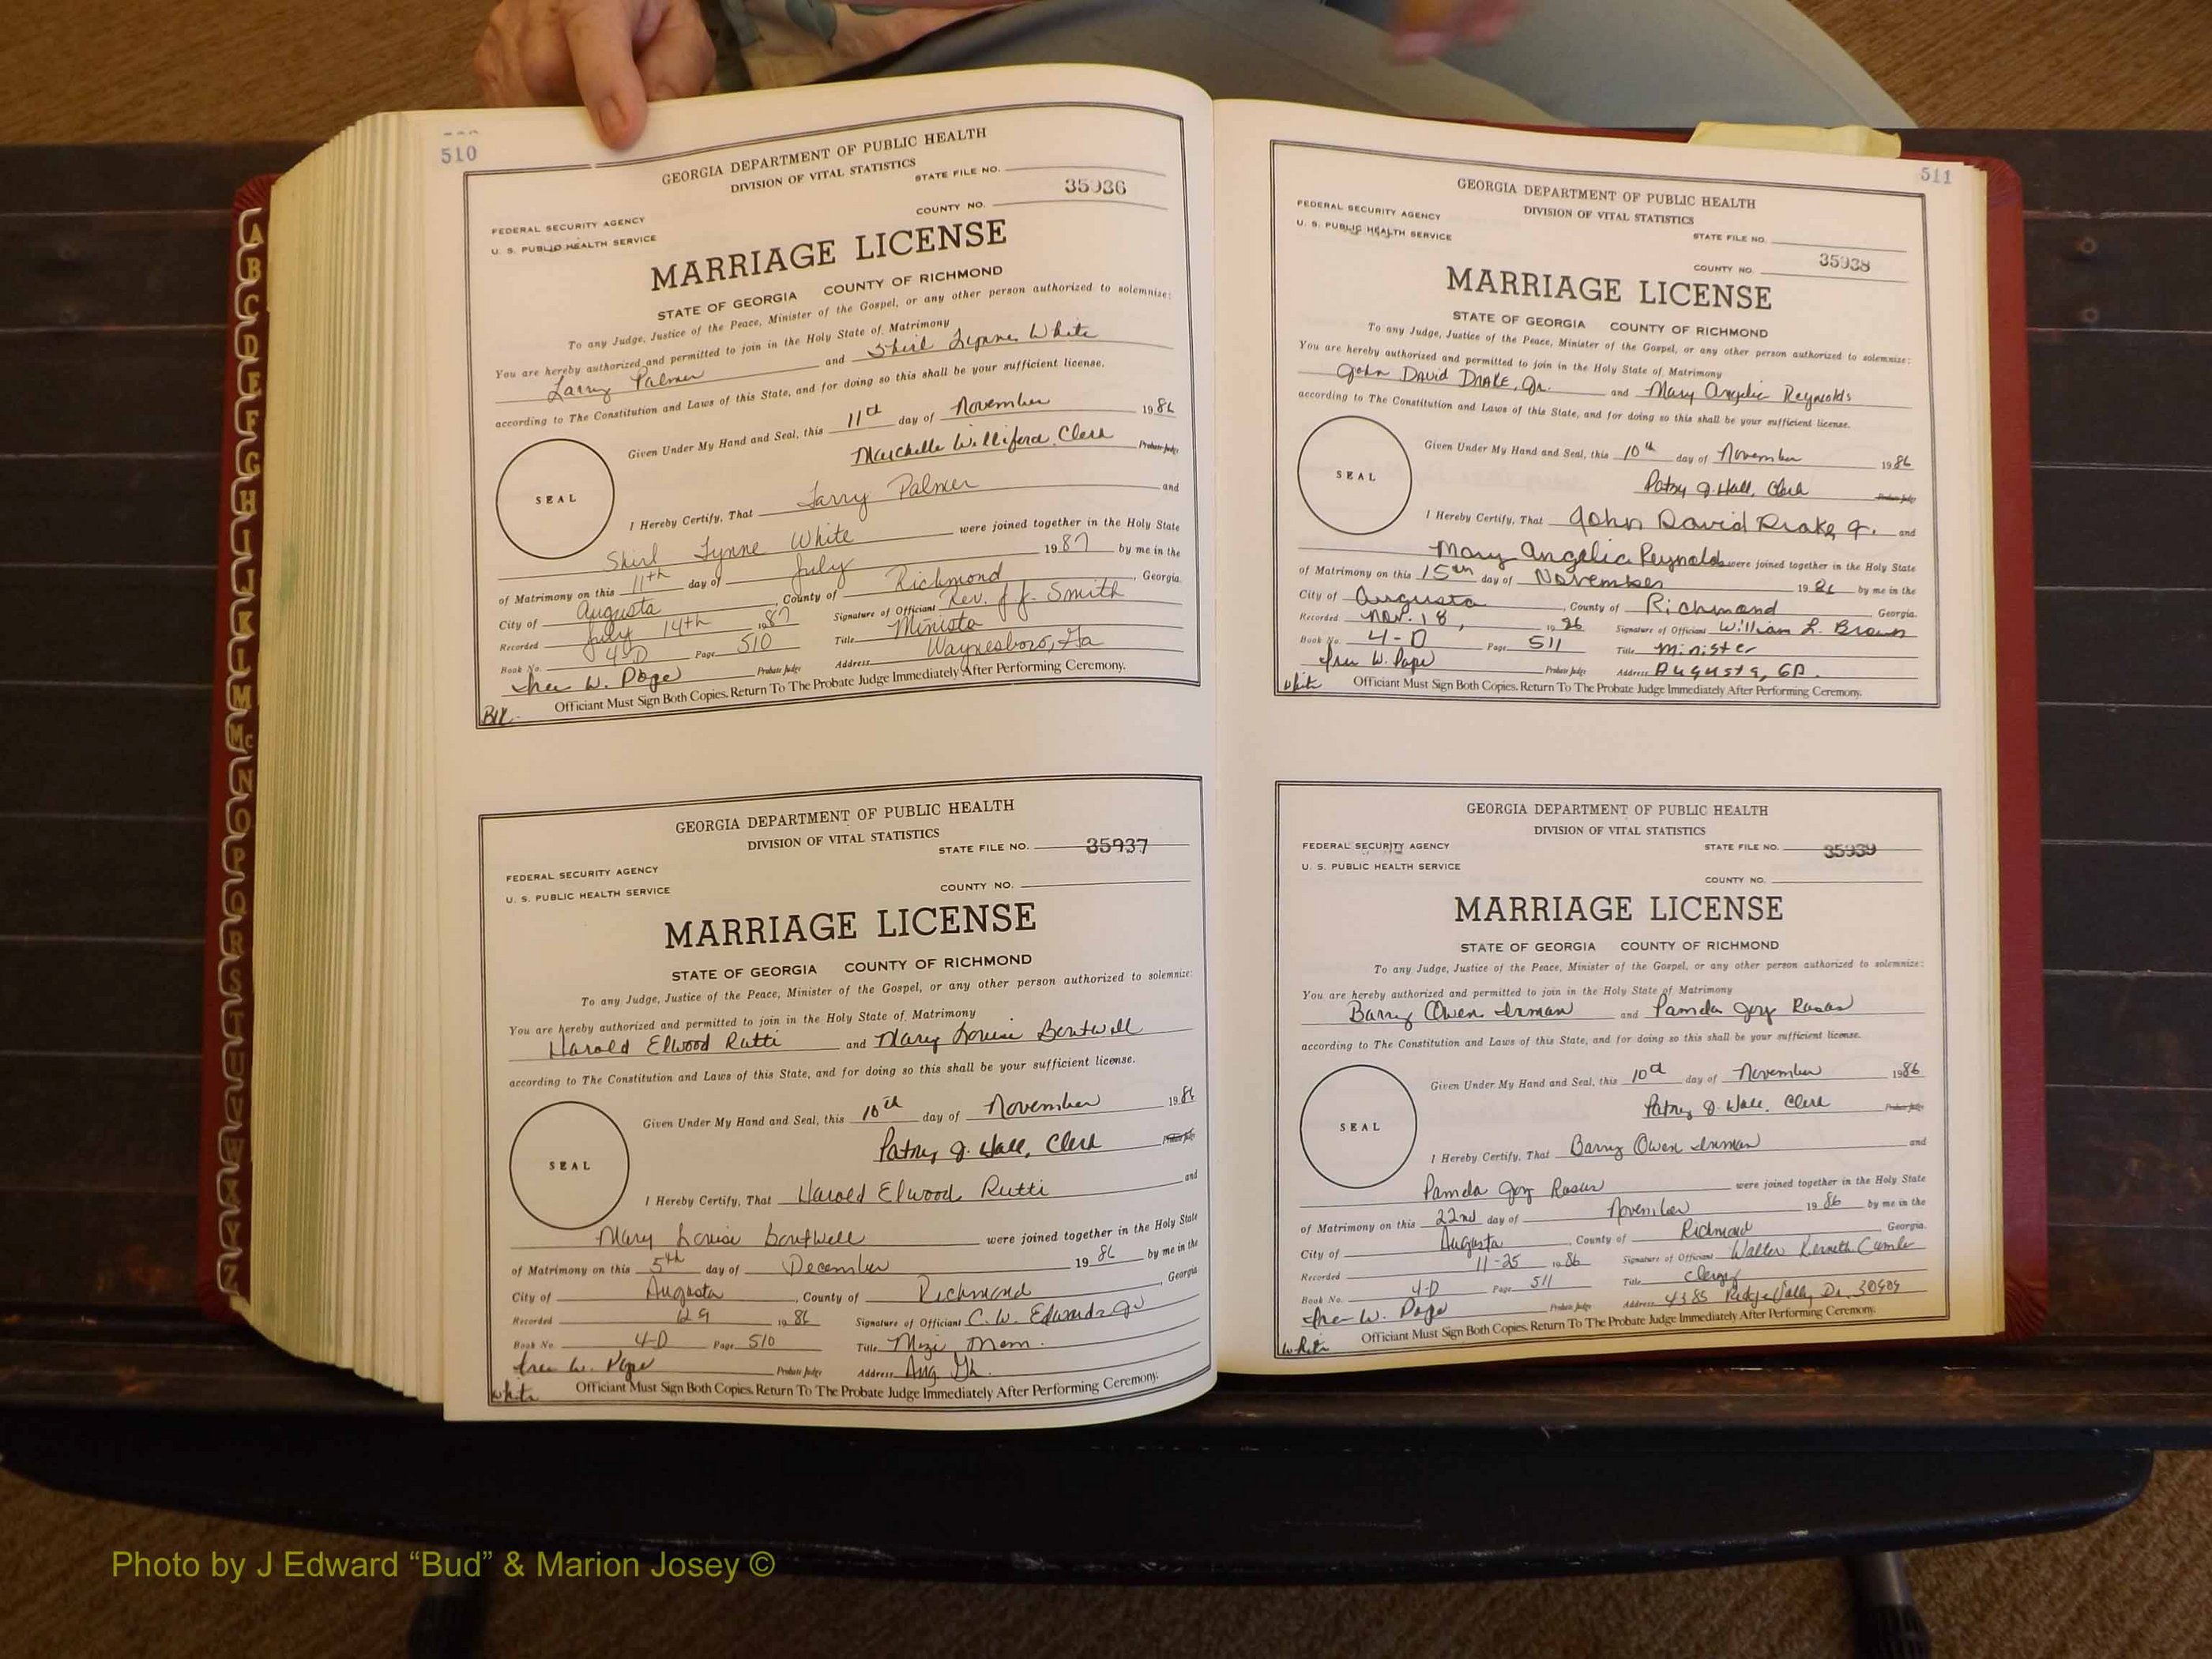 510
GEORGIA DEPARTMENT OF PUBLIC HEALTH
DIVISION OF VITAL STATISTICS
STATE FILE NO.
35936
COUNTY NO.
FEDERAL SECURITY AGENCY
U. S. PUBLIC HEALTH SERVICE
MARRIAGE LICENSE
STATE OF GEORGIA COUNTY OF RICHMOND
To any Judge, Justice of the Peace, Minister of the Gospel, or any other person authorized to solemnize:
You are hereby authorized and permitted to join in the Holy State of Matrimony
Larry Palmer and Shirl Lynne White
according to The Constitution and Laws of this State, and for doing so this shall be your sufficient license.
Given Under My Hand and Seal, this 11th day of November 1986
Marchelle Williford, Clerk Probate Judge
SEAL
I Hereby Certify, That Larry Palmer and
Shirl Lynne White were joined together in the Holy State
of Matrimony on this 11th day of July 1987 by me in the
City of Augusta, County of Richmond, Georgia.
Recorded July 14th 1987 Signature of Officiant Rev. J. J. Smith
Book No. 4-D Page 510 Title Minister
W. Pope Probate Judge Address Waynesboro, Ga
Officiant Must Sign Both Copies. Return To The Probate Judge Immediately After Performing Ceremony.
Blk.
GEORGIA DEPARTMENT OF PUBLIC HEALTH
DIVISION OF VITAL STATISTICS
STATE FILE NO. 35937
FEDERAL SECURITY AGENCY
U. S. PUBLIC HEALTH SERVICE
COUNTY NO.
MARRIAGE LICENSE
STATE OF GEORGIA COUNTY OF RICHMOND
To any Judge, Justice of the Peace, Minister of the Gospel, or any other person authorized to solemnize:
You are hereby authorized and permitted to join in the Holy State of Matrimony
Harold Elwood Rutti and Mary Louise Boutwell
according to The Constitution and Laws of this State, and for doing so this shall be your sufficient license.
Given Under My Hand and Seal, this 10th day of November 1986
Patsy J. Hall, Clerk Probate Judge
SEAL
I Hereby Certify, That Harold Elwood Rutti and
Mary Louise Boutwell were joined together in the Holy State
of Matrimony on this 5th day of December 1986 by me in the
City of Augusta, County of Richmond, Georgia
Recorded 12 9 1986 Signature of Officiant C. W. Edwards Jr
Book No. 4-D Page 510 Title
W. Pope Probate Judge Address Aug. Ga.
Officiant Must Sign Both Copies. Return To The Probate Judge Immediately After Performing Ceremony.
White
511
GEORGIA DEPARTMENT OF PUBLIC HEALTH
DIVISION OF VITAL STATISTICS
FEDERAL SECURITY AGENCY
U. S. PUBLIC HEALTH SERVICE
STATE FILE NO.
35938
COUNTY NO.
MARRIAGE LICENSE
STATE OF GEORGIA COUNTY OF RICHMOND
To any Judge, Justice of the Peace, Minister of the Gospel, or any other person authorized to solemnize:
You are hereby authorized and permitted to join in the Holy State of Matrimony
John David Drake, Jr. and Mary Angelic Reynolds
according to The Constitution and Laws of this State, and for doing so this shall be your sufficient license.
Given Under My Hand and Seal, this 10th day of November 1986
Patsy J. Hall, Clerk Probate Judge
SEAL
I Hereby Certify, That John David Drake Jr. and
Mary Angelic Reynolds were joined together in the Holy State
of Matrimony on this 15th day of November 1986 by me in the
City of Augusta, County of Richmond Georgia.
Recorded Nov. 18, 1986 Signature of Officiant William L. Brown
Book No. 4-D Page 511 Title Minister
W. Pope Probate Judge Address Augusta, GA.
White
Officiant Must Sign Both Copies. Return To The Probate Judge Immediately After Performing Ceremony.
GEORGIA DEPARTMENT OF PUBLIC HEALTH
DIVISION OF VITAL STATISTICS
FEDERAL SECURITY AGENCY
STATE FILE NO. 35939
U. S. PUBLIC HEALTH SERVICE
COUNTY NO.
MARRIAGE LICENSE
STATE OF GEORGIA COUNTY OF RICHMOND
To any Judge, Justice of the Peace, Minister of the Gospel, or any other person authorized to solemnize:
You are hereby authorized and permitted to join in the Holy State of Matrimony
Barry Owen Inman and Pamela Joy
according to The Constitution and Laws of this State, and for doing so this shall be your sufficient license.
Given Under My Hand and Seal, this 10th day of November 1986
Patsy J. Hall, Clerk Probate Judge
SEAL
I Hereby Certify, That Barry Owen Inman and
Pamela Joy were joined together in the Holy State
of Matrimony on this 22nd day of November 1986 by me in the
City of Augusta, County of Richmond Georgia.
Recorded 11-25 1986 Signature of Officiant Walter Kenneth
Book No. 4-D Page 511 Title Clergy
W. Pope Probate Judge Address 4385 Ridge Valley Dr. 30909
Officiant Must Sign Both Copies. Return To The Probate Judge Immediately After Performing Ceremony.
White
A
B
C
D
E
F
G
H
I
J
K
L
M
Mc
N
O
P
Q
R
S
T
U
V
W
X
Y
Z
Photo by J Edward “Bud” & Marion Josey ©